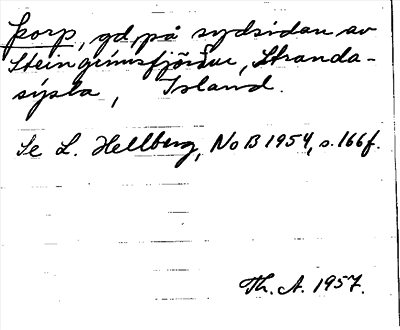 Þorp, gd, på sydsidan av
Steingrímsfjörður, Stranda-
sýsla, Island.
Se L. Hellberg, NoB 1954, s. 166 f.
Th. A. 1957.